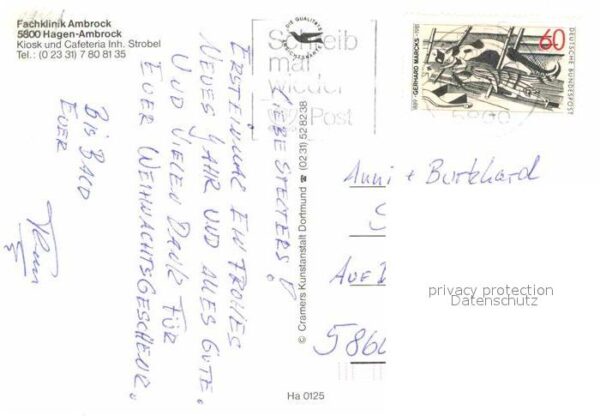 Fachklinik Ambrock
5800 Hagen-Ambrock
Kiosk und Cafeteria Inh. Strobel
Tel.: (0 23 31) 7 80 81 35
DIE QUALITÄTS
ANSICHTSKARTE
Schreib
mal
wieder
Post
5800
1889 GERHARD MARCKS 1981
60
DEUTSCHE BUNDESPOST
ERSTEINMAL EIN FROHES
NEUES JAHR UND ALLES GUTE.
UND VIELEN DANK FÜR
EUER WEIHNACHTSGESCHENK.
BIS BALD
EUER
© Cramers Kunstanstalt Dortmund ☎ (02 31) 52 82 38
Anni + Burkhard
S
AUF D
586
privacy protection
Datenschutz
Ha 0125